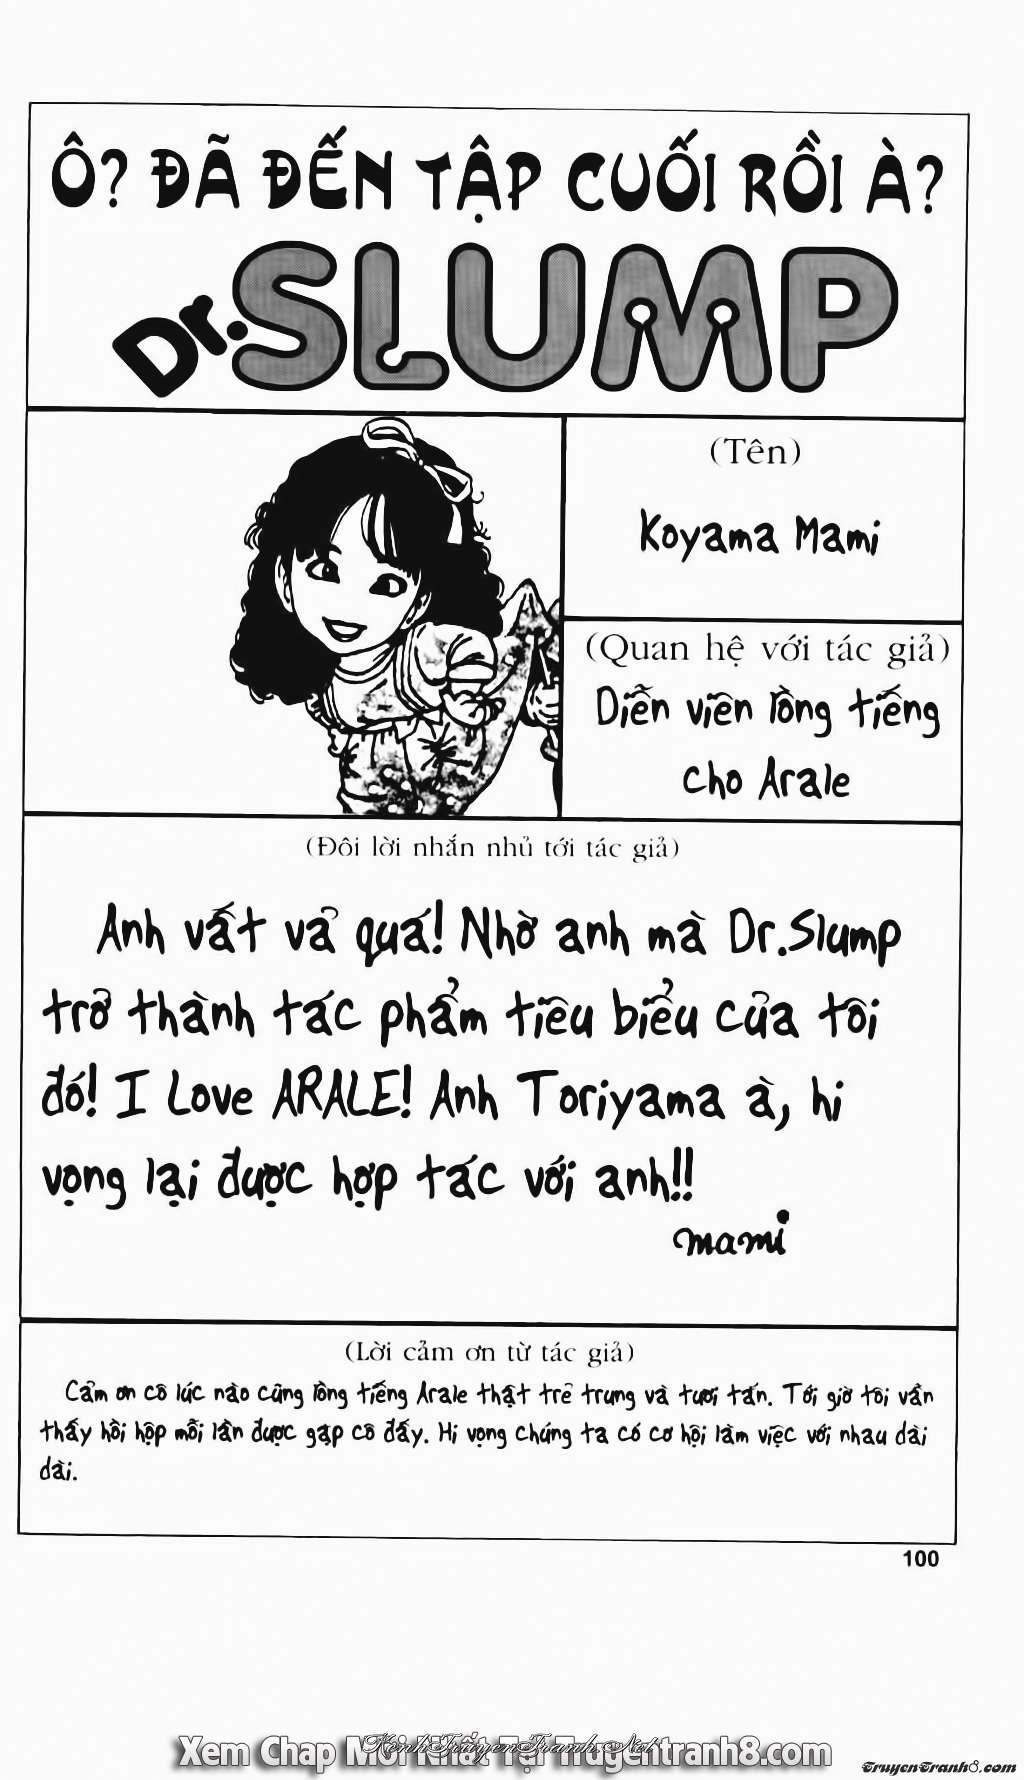 Ô? ĐÃ ĐẾN TẬP CUỐI RỒI À?
Dr. SLUMP
(Tên)
Koyama Mami
(Quan hệ với tác giả)
Diễn viên lồng tiếng
cho Arale
(Đôi lời nhắn nhủ tới tác giả)
Anh vất vả quá! Nhờ anh mà Dr.Slump
trở thành tác phẩm tiêu biểu của tôi
đó! I Love ARALE! Anh Toriyama à, hi
vọng lại được hợp tác với anh!!
mami
(Lời cảm ơn từ tác giả)
Cảm ơn cô lúc nào cũng lồng tiếng Arale thật trẻ trung và tươi tắn. Tới giờ tôi vẫn
thấy hồi hộp mỗi lần được gặp cô đấy. Hi vọng chúng ta có cơ hội làm việc với nhau dài
dài.
100
Xem Chap Mới Nhất Tại Truyentranh8.com
KenhTruyenTranh.Net
TruyenTranh8.com